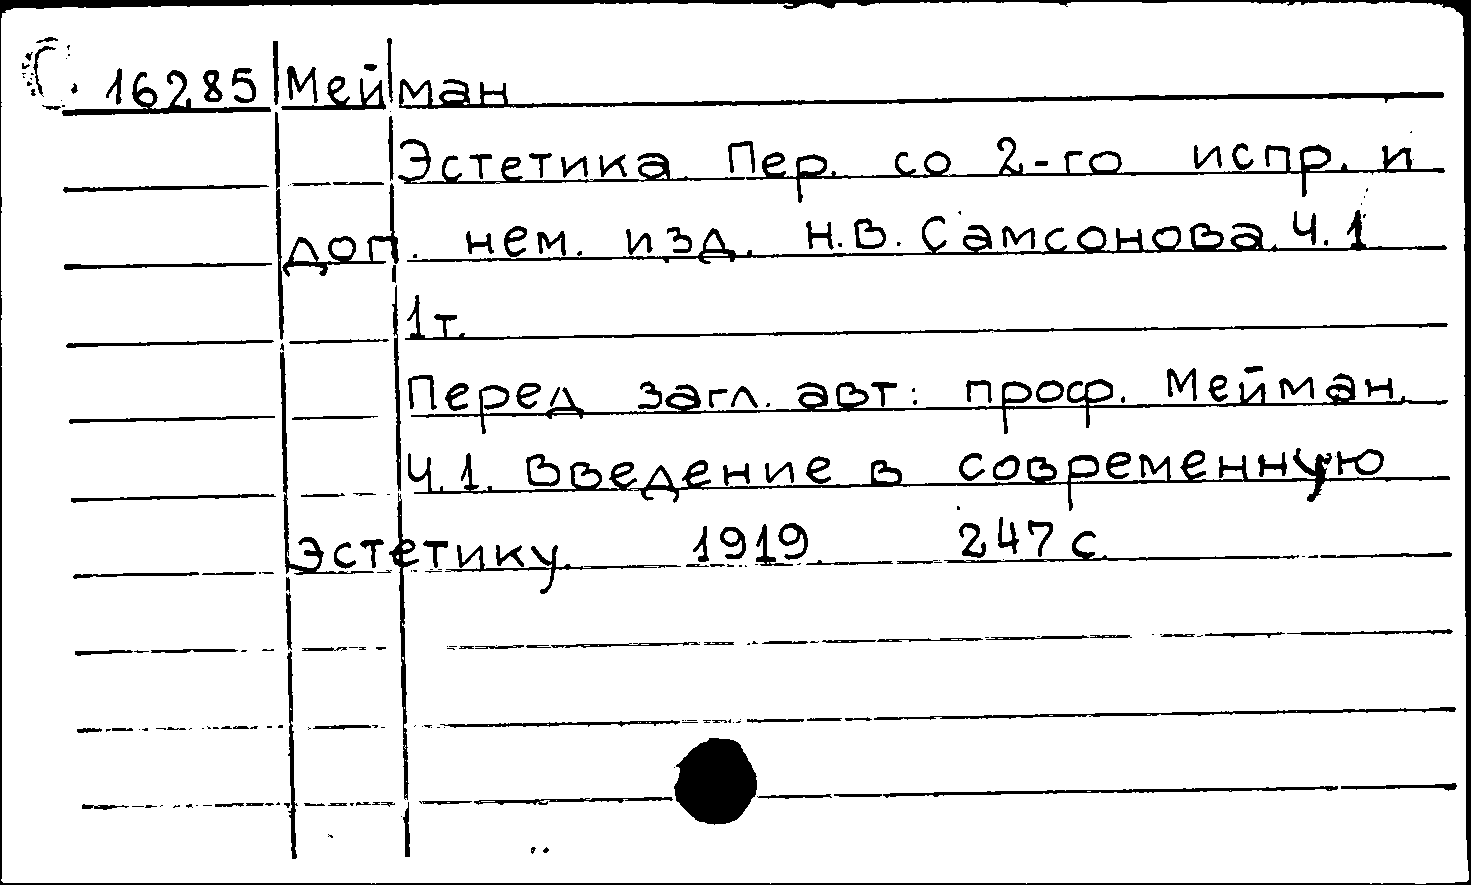 С. 16285 Мейман
Эстетика Пер. со 2-го испр. и
доп. нем. изд. Н.В. Самсонова. Ч.1
1 т.
Перед загл. авт: проф. Мейман.
Ч.1. Введение в современную
эстетику. 1919. 247 с.